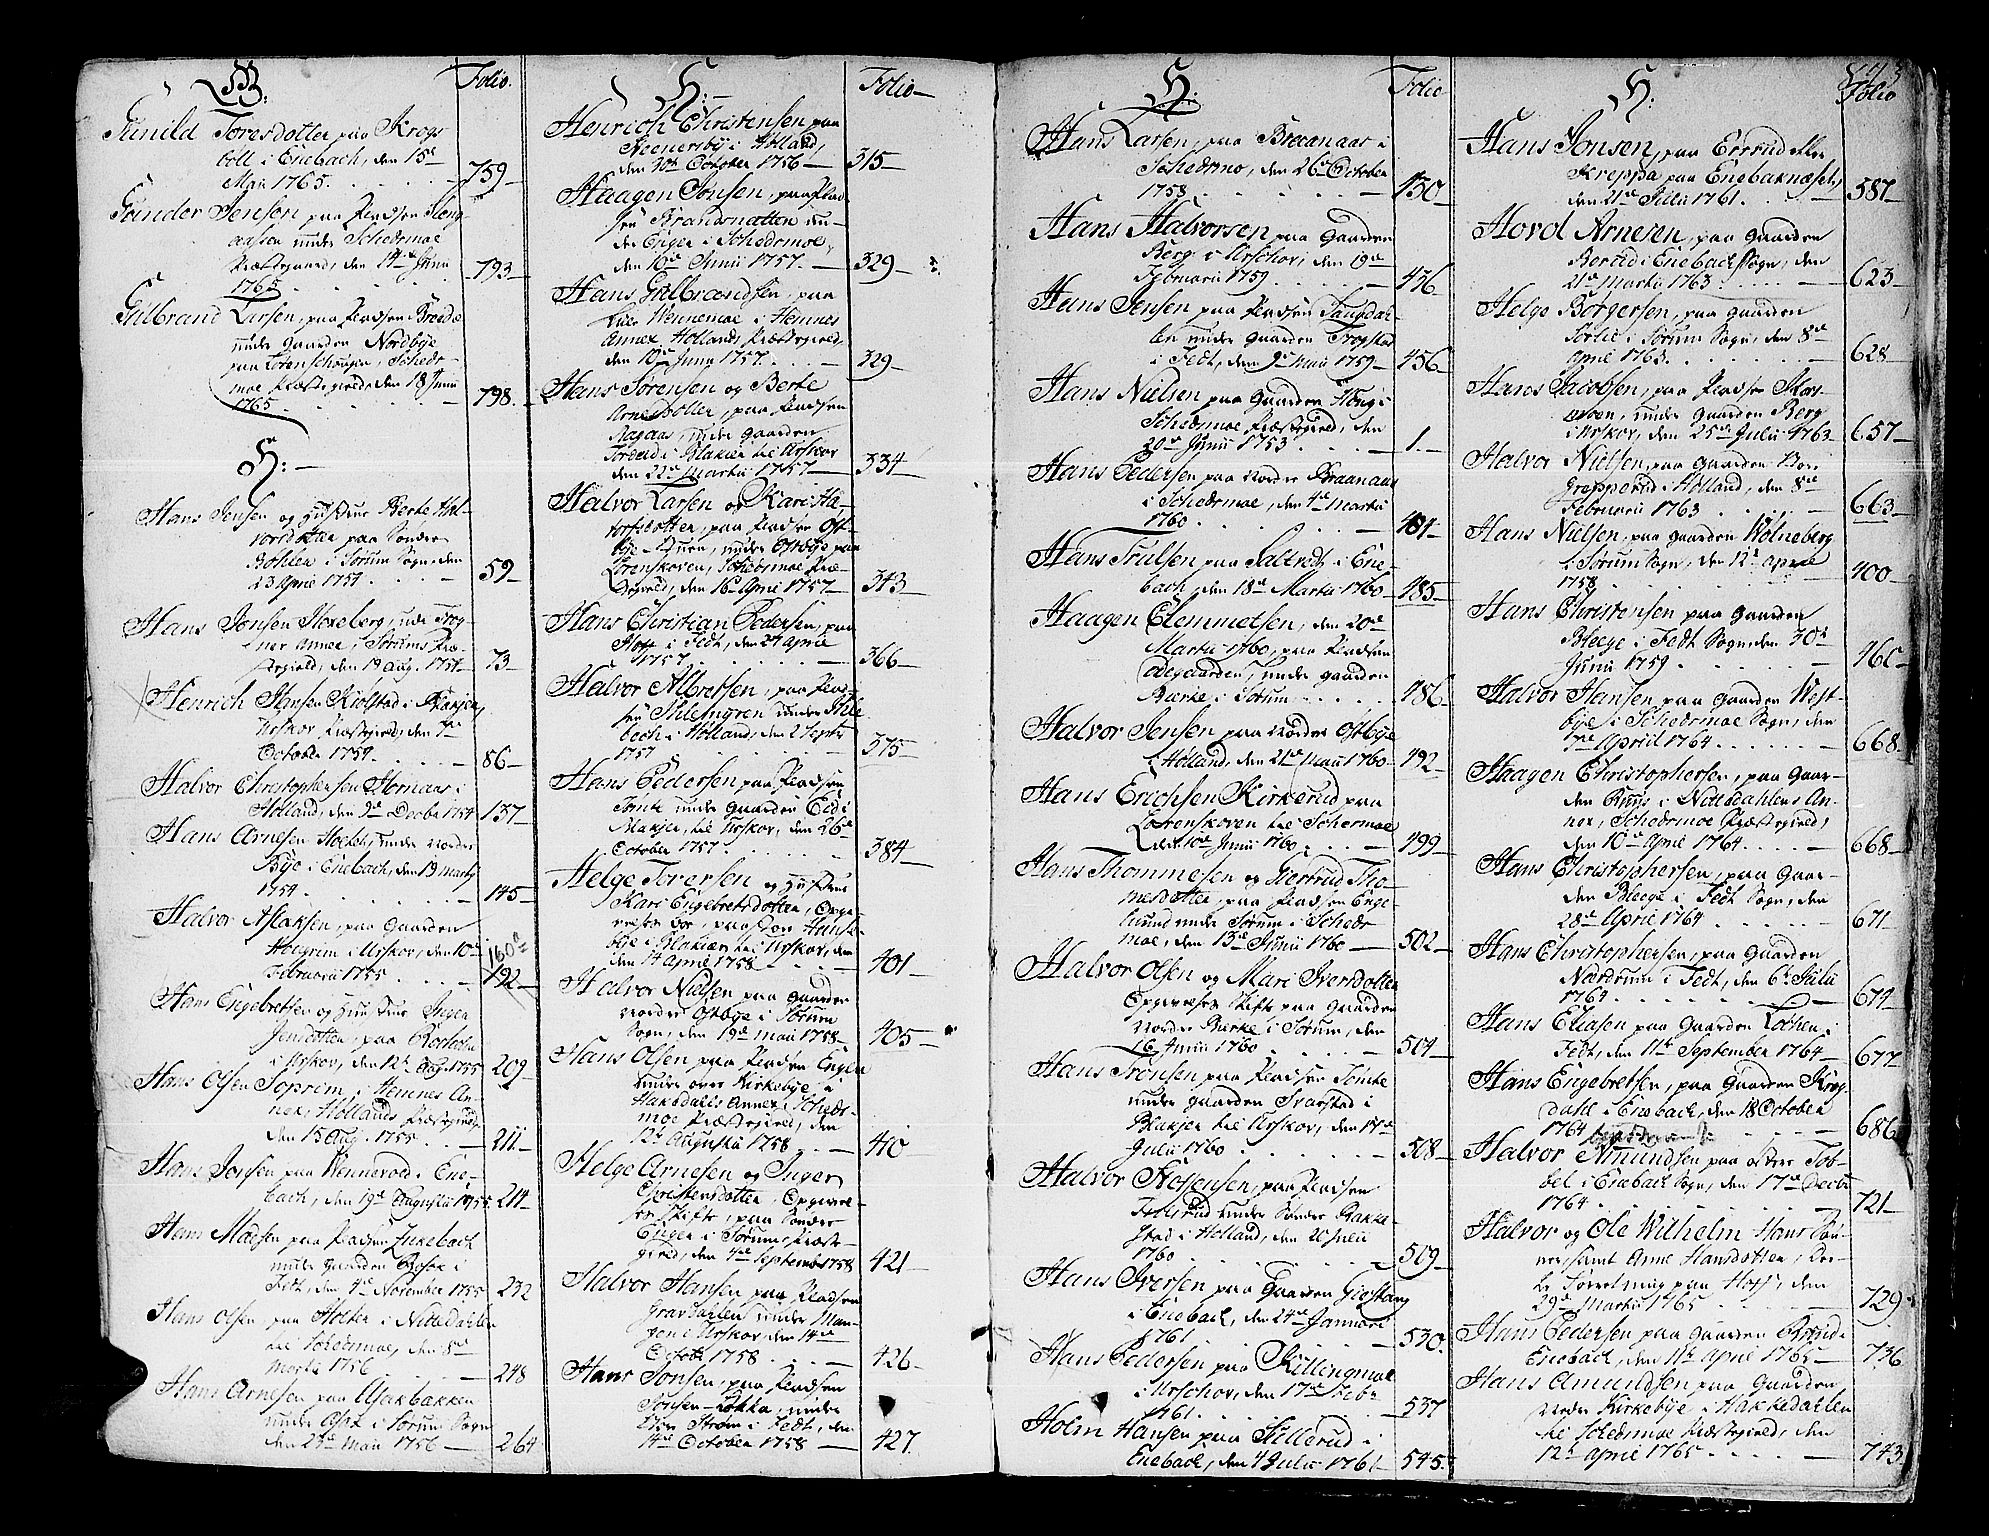 G: Folio.
Gunild Toresdotter paa Krogs
böll i Enebach, den 15de
Maii 1765. 759
Gunder Jensen paa Pladsen Heng
aasen under Schedsmoe
Præstegaard, den 14de Junii
1765 793
Gulbrand Larsen, paa Pladsen Bredde
under Gaarden Nordbye
paa Lorenschougen, Scheds-
moe Præstegield, den 18 Junii
1765 798.
H:
Hans Jensen og Hustrue Berte Hal-
vorsdotter paa Sönder
Bohler i Sörum Sogn, den
23 April 1754 59
Hans Jensen Hexeberg, udi Frog-
ner Annex, Sörums Præ-
stegield, den 19 Aug. 1754 73
Henrich Hansen Kiolstad i Blakjer,
Urskov Præstegield, den 4de
October 1754. 86
Halvor Christophersen Hornaas i
Holland, den 9de Decbr 1754 137
Hans Arnesen Holter, under Nordre
Bye i Enebach, den 19 Marty
1754 145
Halvor Aslaksen, paa Gaarden
Hoegrim i Urskov, den 10de
Februarii 1755 192
160
Hans Engebretsen og Hustrue Inger
Jensdotter, paa Rorholt
i Urskov, den 12te Aug. 1755 209
Hans Olsen Soprim, i Hemnes An-
nex, Hollands Præstegield,
den 15 Aug. 1755 211
Hans Jonsen paa Wennevold i Ene-
bach, den 19de Augustii 1755 214
Hans Madsen paa Pladsen Inkebach
under Gaarden
Fedt, den 4de November 1755 232
Hans Olsen paa Holter i Nittedahlen
til Schedsmoe, den 8de
Martii 1756 248
Hans Arnesen paa Ajakbakken
under Asak i Sörum Sogn
den 25de Maii 1756 264
H: Folio
Henrich Christensen paa
Kenersby i Holland,
den 20de October 1756 315
Haagen Jonsen, paa Plad
sen Brandsnatten un-
der Enger i Schedsmoe,
den 10de Junii 1757. 329
Hans Gulbrandsen, paa
Lille Wennemoe i Hemnes
Annex, Hollands Præstegield,
den 10de Junii 1757. 329
Hans Sörensen og Berte
Arnesdotter, paa Pladsen
Aagaas, under Gaarden
Tordrud i Blakier til Urskov
den 22de Martii 1757 334
Halvor Larsen og Kari Hal-
vorsdotter, paa Pladsen Ost-
bye-Quern, under Ostbye paa
Lorenskoven, Schedsmoe Præ-
stegield, den 16 April 1757 343
Hans Christian Pedersen, paa
Hoff i Fedt, den 24 April
1757 366
Halvor Albretsen, paa Plad-
sen Ihlemgren under Ihle
bech i Holland, den 2 Septr
1757 375
Hans Pedersen paa Pladsen
Tomte under Gaarden Eid i
Blakjer til Urskov, den 26de
October 1757. 384
Helge Toresen og Hustrue
Kari Engebretsdotter, Opgi-
velses Bo, paa Pladsen Hanse-
bye i Blakier til Urskov, den
14 April 1758 401
Halvor Nielsen paa Gaarden
Nordre Ostbye i Sörum
Sogn, den 19de Maii 1758 405
Hans Olsen paa Pladsen Engen
under over Kirkebye i
Hakedahls Annex, Scheds-
moe Præstegield, den
12te Augustii 1758 410
Helge Arnesen og Inger
Christensdotter, Opgivel-
ses Skifte, paa Söndre
Enger i Sörum Præste-
gield, den 4de Septembr 1758 421
Halvor Hansen paa Pladsen
Gravdahlen under Man-
gen i Urskov, den 14de
October 1758 426
Hans Jonsen, paa Pladsen
Jonsen-Lökka, under
Ström i Fedt, den
14de October 1758 427.
H: Folio
Hans Larsen, paa Braanaas i
Schedsmo, den 26de October
1758 430
Hans Halvorsen paa Gaarden
Berg i Urschov, den 19de
Febroarii 1759 436
Hans Jensen paa Pladsen Saugdah-
len under Gaarden Frogstad
i Fedt, den 9de Maii 1759 456
Hans Nielsen paa Gaarden Höng i
Schedsmoe Præstegield, den
20de Junii 1753 1.
Hans Pedersen paa Nordre Braanaas
i Schedsmoe, den 4de Martii
1760 481
Hans Trulsen paa Saltvedt i Ene-
bach, den 18de Martii 1760 485
Haagen Clemmetsen, den 20de
Martii 1760, paa Pladsen
Ödegaarden, under Gaarden
Bierke i Sörum 486
Halvor Jensen paa Nordre Ostbye
i Holland, den 21de Maii 1760 492
Hans Erichsen Kirkerud paa
Lorenskoven til Schedsmoe
den 10de Junii 1760 499
Hans Thommesen og Giertrud Tho-
mesdotter, paa Pladsen Enge-
lund under Sörum i Scheds-
moe, den 13de Junii 1760 502
Halvor Olsen og Mari Iversdotter
Opgivelses Skifte paa Gaarden
Nordre Bierke i Sörum, den
16 Junii 1760 504
Hans Tronsen paa Pladsen Tomte
under Gaarden Svarstad i
Blakjer til Urskov, den 17de
Julii 1760 508
Halvor Stossensen, paa Pladsen
under Söndre Bakke-
stad i Holland, den 20 Julii
1760 509
Hans Iversen paa Gaarden Giestang
i Enebach, den 24de Januarii
1761 530
Hans Pedersen paa Killingmoe
i Urschov, den 17de Febr.
1761 537
Holm Hansen paa Tullerud i
Enebach, den 4 Julii 1761 545.
H: Folio
Hans Jonsen, paa Errud eller
Kreppa paa Enebaknæset,
den 21de Julii 1761. 587
Hovel Arnesen, paa Gaarden
Börsted i Enebachs Sogn, den
21de Martii 1763 623
Helge Börgersen, paa Gaarden
Sortie i Sörum Sogn, den 8de
April 1763. 628
Hans Jacobsen, paa Pladsen Skar-
viven, under Gaarden Berg
i Urskov, den 25de Julii 1763 657
Halvor Nielsen, paa Gaarden Bor-
Grepperud i Holland, den 8de
Februarii 1763 663
Hans Nielsen, paa Gaarden Wolneberg
i Sörum Sogn, den 12te April
1758 400
Hans Christensen paa Gaarden
Bleege i Fedt Sogn, den 30te
Junii 1759 460
Halvor Hansen paa Gaarden West-
bye i Schedsmoe Sogn,
7de April 1764 668
Haagen Christophersen, paa Gaar-
den Ruus i Nittedahlens An-
nex, Schedsmoe Præstegield,
den 10de April 1764 668
Hans Christophersen, paa Gaar-
den Bleege i Fedt Sogn, den
28de April 1764 671
Hans Christophersen, paa Gaarden
Nordrum i Fedt, den 6te Julii
1764 674
Hans Eliasen paa Gaarden Lochen i
Fedt, den 11te September 1764 677
Hans Engebretsen, paa Gaarden Krog-
dahl i Enebach, den 18 October
1764 686
Halvor Amundsen paa Östre Tob-
bel i Enebach Sogn, den 17de Decbr
1764 721
Halvor og Ole Wilhelm Hans Sön-
ner, samt Anne Hansdotter, Der-
es Forretning paa Hoff, den
29de Martii 1765 729
Hans Pedersen paa Gaarden Börsted i
Enebach, den 11te April 1765 736
Hans Amundsen paa Gaarden
Nordre Kirkebye i Hakkedahlen
til Schedsmoe Præstegield, den
12te April 1765 743